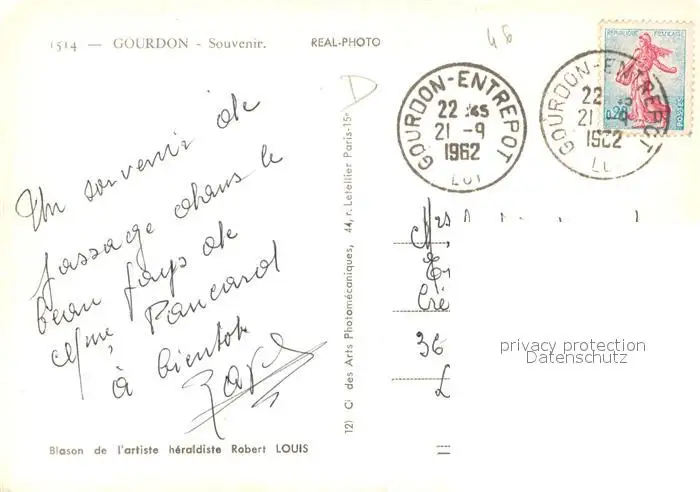 1514 — GOURDON - Souvenir.
REAL-PHOTO
46
D
GOURDON-ENTREPOT
22 45
21 -9
1962
LOT
GOURDON-ENTREPOT
22 45
21 -9
1962
REPUBLIQUE FRANÇAISE
0,20
POSTES
Un souvenir de
passage dans le
beau pays de
Mme Pancarol
à bientôt
12) Cie des Arts Photomécaniques, 44, r. Letellier Paris-15e
Mrs
36
privacy protection
Datenschutz
Blason de l'artiste héraldiste Robert LOUIS